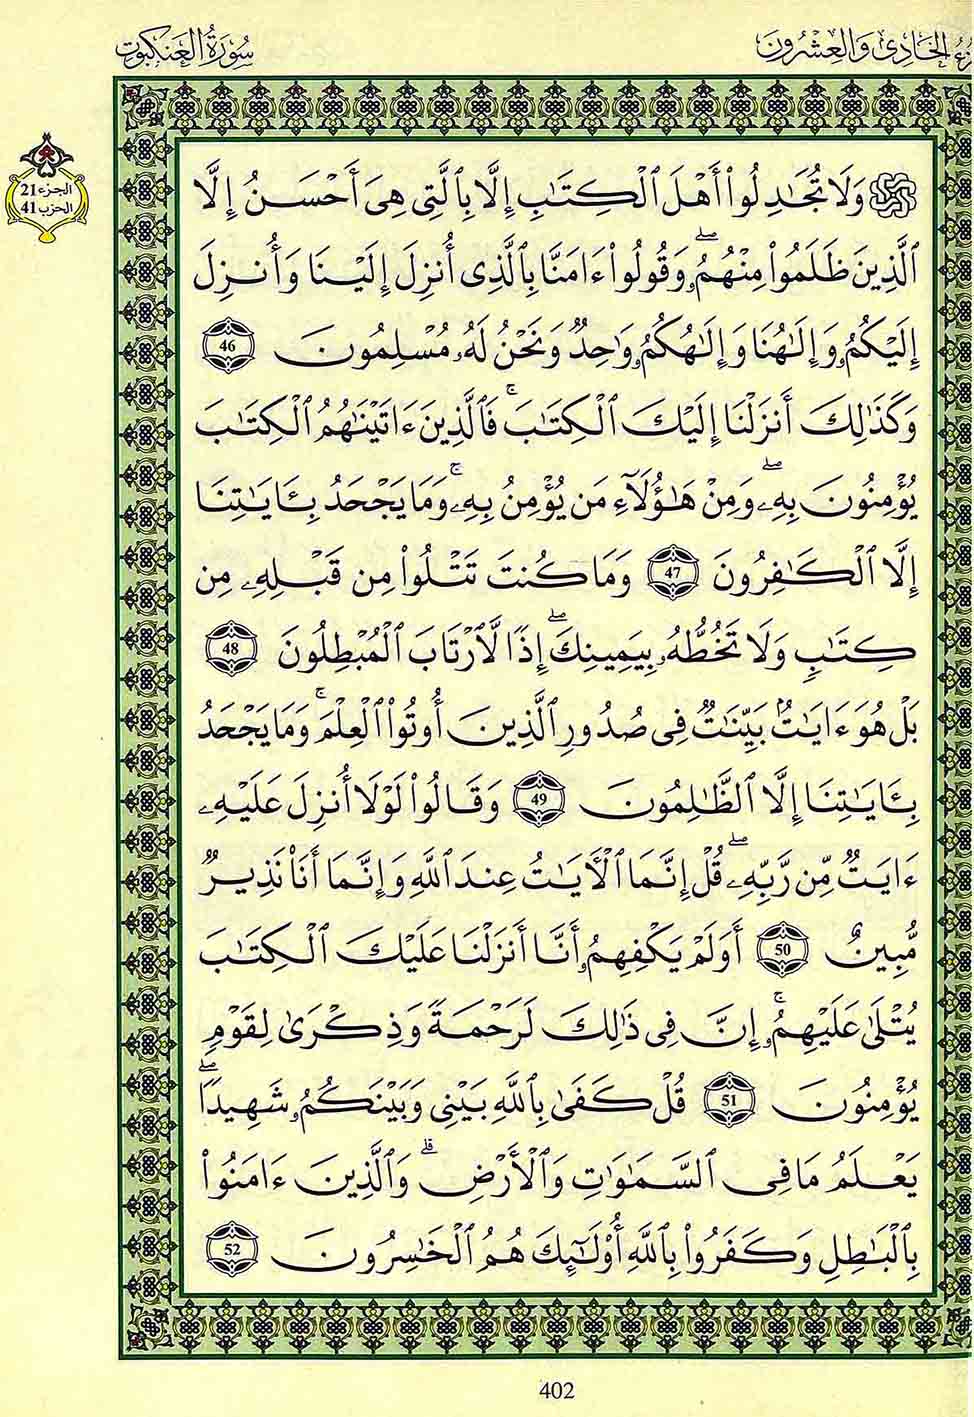 الحَادِى وَالعِشْرُونَ
سُورَةُ العَنكَبُوت
الجزء 21
الحزب 41
وَلَا تُجَٰدِلُوا۟ أَهْلَ ٱلْكِتَٰبِ إِلَّا بِٱلَّتِى هِىَ أَحْسَنُ إِلَّا
ٱلَّذِينَ ظَلَمُوا۟ مِنْهُمُۥۖ وَقُولُوا۟ ءَامَنَّا بِٱلَّذِى أُنزِلَ إِلَيْنَا وَأُنزِلَ
إِلَيْكُمُۥ وَإِلَٰهُنَا وَإِلَٰهُكُمُۥ وَٰحِدٌ وَنَحْنُ لَهُۥ مُسْلِمُونَ 46
وَكَذَٰلِكَ أَنزَلْنَا إِلَيْكَ ٱلْكِتَٰبَۚ فَٱلَّذِينَ ءَاتَيْنَٰهُمُ ٱلْكِتَٰبَ
يُؤْمِنُونَ بِهِۦۖ وَمِنْ هَٰؤُلَآءِ مَن يُؤْمِنُ بِهِۦۚ وَمَا يَجْحَدُ بِـَٔايَٰتِنَا
إِلَّا ٱلْكَٰفِرُونَ 47 وَمَا كُنتَ تَتْلُوا۟ مِن قَبْلِهِۦ مِن
كِتَٰبٍ وَلَا تَخُطُّهُۥ بِيَمِينِكَۖ إِذًا لَّٱرْتَابَ ٱلْمُبْطِلُونَ 48
بَلْ هُوَ ءَايَٰتٌۢ بَيِّنَٰتٌ فِى صُدُورِ ٱلَّذِينَ أُوتُوا۟ ٱلْعِلْمَۚ وَمَا يَجْحَدُ
بِـَٔايَٰتِنَا إِلَّا ٱلظَّٰلِمُونَ 49 وَقَالُوا۟ لَوْلَا أُنزِلَ عَلَيْهِۦ
ءَايَتٌ مِّن رَّبِّهِۦۖ قُلْ إِنَّمَا ٱلْأَيَٰتُ عِندَ ٱللَّهِ وَإِنَّمَا أَنَا۠ نَذِيرٌ
مُّبِينٌ 50 أَوَلَمْ يَكْفِهِمُۥ أَنَّا أَنزَلْنَا عَلَيْكَ ٱلْكِتَٰبَ
يُتْلَىٰ عَلَيْهِمُۥۚ إِنَّ فِى ذَٰلِكَ لَرَحْمَةً وَذِكْرَىٰ لِقَوْمٍ
يُؤْمِنُونَ 51 قُلْ كَفَىٰ بِٱللَّهِ بَيْنِى وَبَيْنَكُمُۥ شَهِيدًاۖ
يَعْلَمُ مَا فِى ٱلسَّمَٰوَٰتِ وَٱلْأَرْضِۗ وَٱلَّذِينَ ءَامَنُوا۟
بِٱلْبَٰطِلِ وَكَفَرُوا۟ بِٱللَّهِ أُو۟لَٰٓئِكَ هُمُ ٱلْخَٰسِرُونَ 52
402